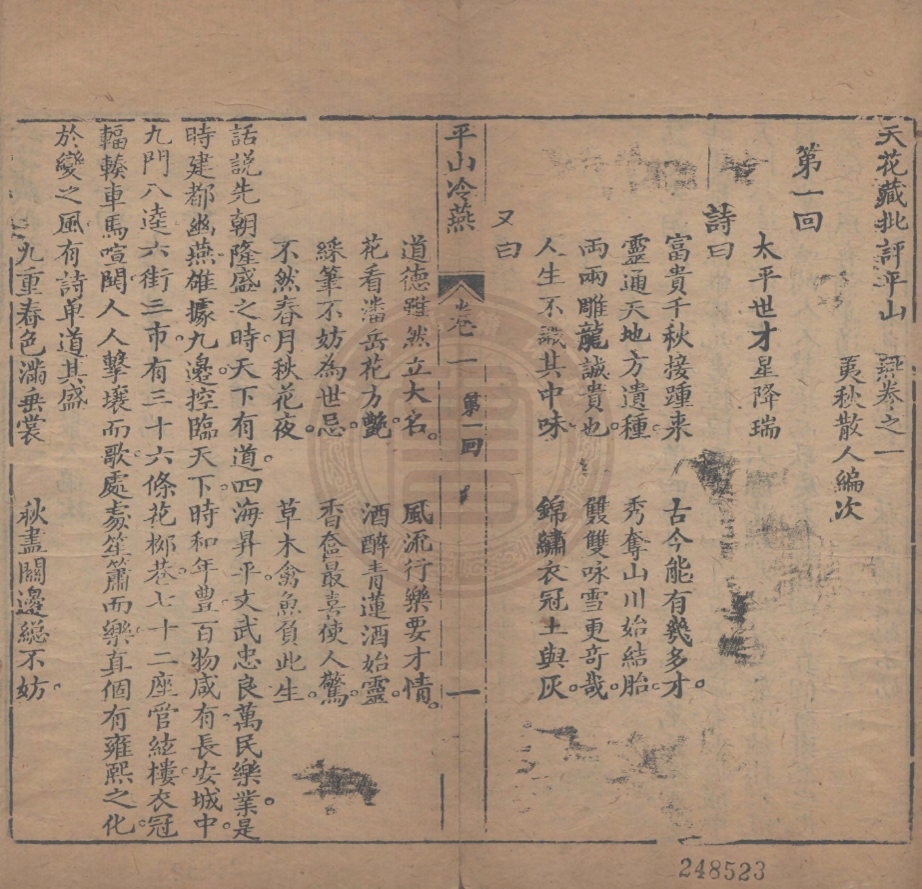 天花藏批評平山冷燕卷之一
荑秋散人編次
第一回
太平世才星降瑞
詩曰
富貴千秋接踵来　古今能有幾多才。
靈通天地方遺種。　秀奪山川始結胎。
兩兩雕龍誠貴也。　雙雙咏雪更奇哉。
人生不識其中味。　錦繡衣冠土與灰。
又曰
平山冷燕　卷一　第一回　一
道德雖然立大名。　風流行樂要才情。
花看潘岳花方艷。　酒醉青蓮酒始靈。
綵筆不妨為世忌。　香奩最喜使人驚。
不然春月秋花夜。　草木禽魚負此生。
話說先朝隆盛之時。天下有道。四海昇平。文武忠良。萬民樂業。是
時建都幽燕。雄據九邊。控臨天下。時和年豊。百物咸有。長安城中。
九門八逵。六街三市。有三十六條花柳巷。七十二座管絃樓。衣冠
輻輳。車馬喧闐。人人擊壤而歌。處處笙簫而樂。真個有雍熙之化。
於變之風。有詩单道其盛
九重春色滿垂裳　秋盡關邊緫不妨。
248523